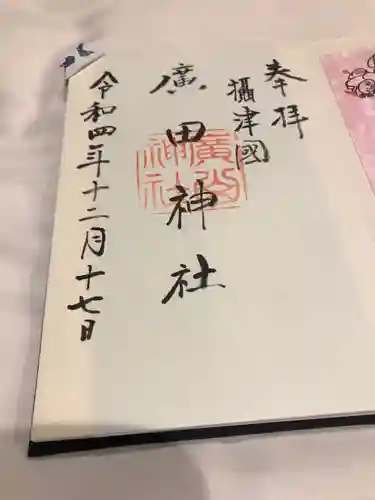 奉拝
攝津國
廣田神社
廣田神社
令和四年十二月十七日